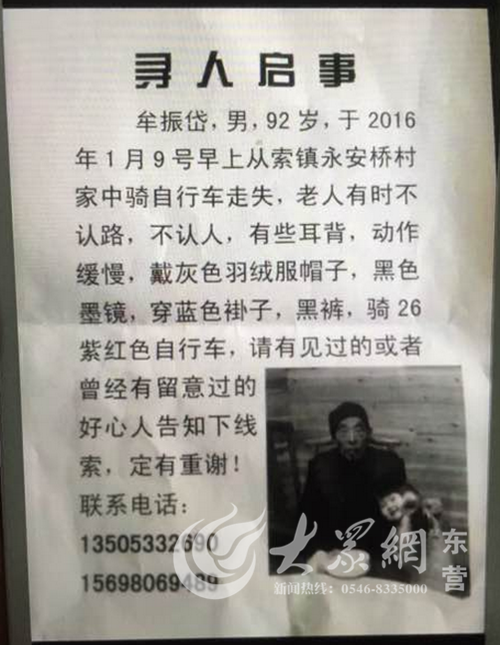 寻人启事
牟振岱，男，92岁，于2016
年1月9号早上从索镇永安桥村
家中骑自行车走失，老人有时不
认路，不认人，有些耳背，动作
缓慢，戴灰色羽绒服帽子，黑色
墨镜，穿蓝色褂子，黑裤，骑26
紫红色自行车，请有见过的或者
曾经有留意过的
好心人告知下线
索，定有重谢！
联系电话：
13505332690
15698069489
大眾網 东营
新闻热线：0546-8335000